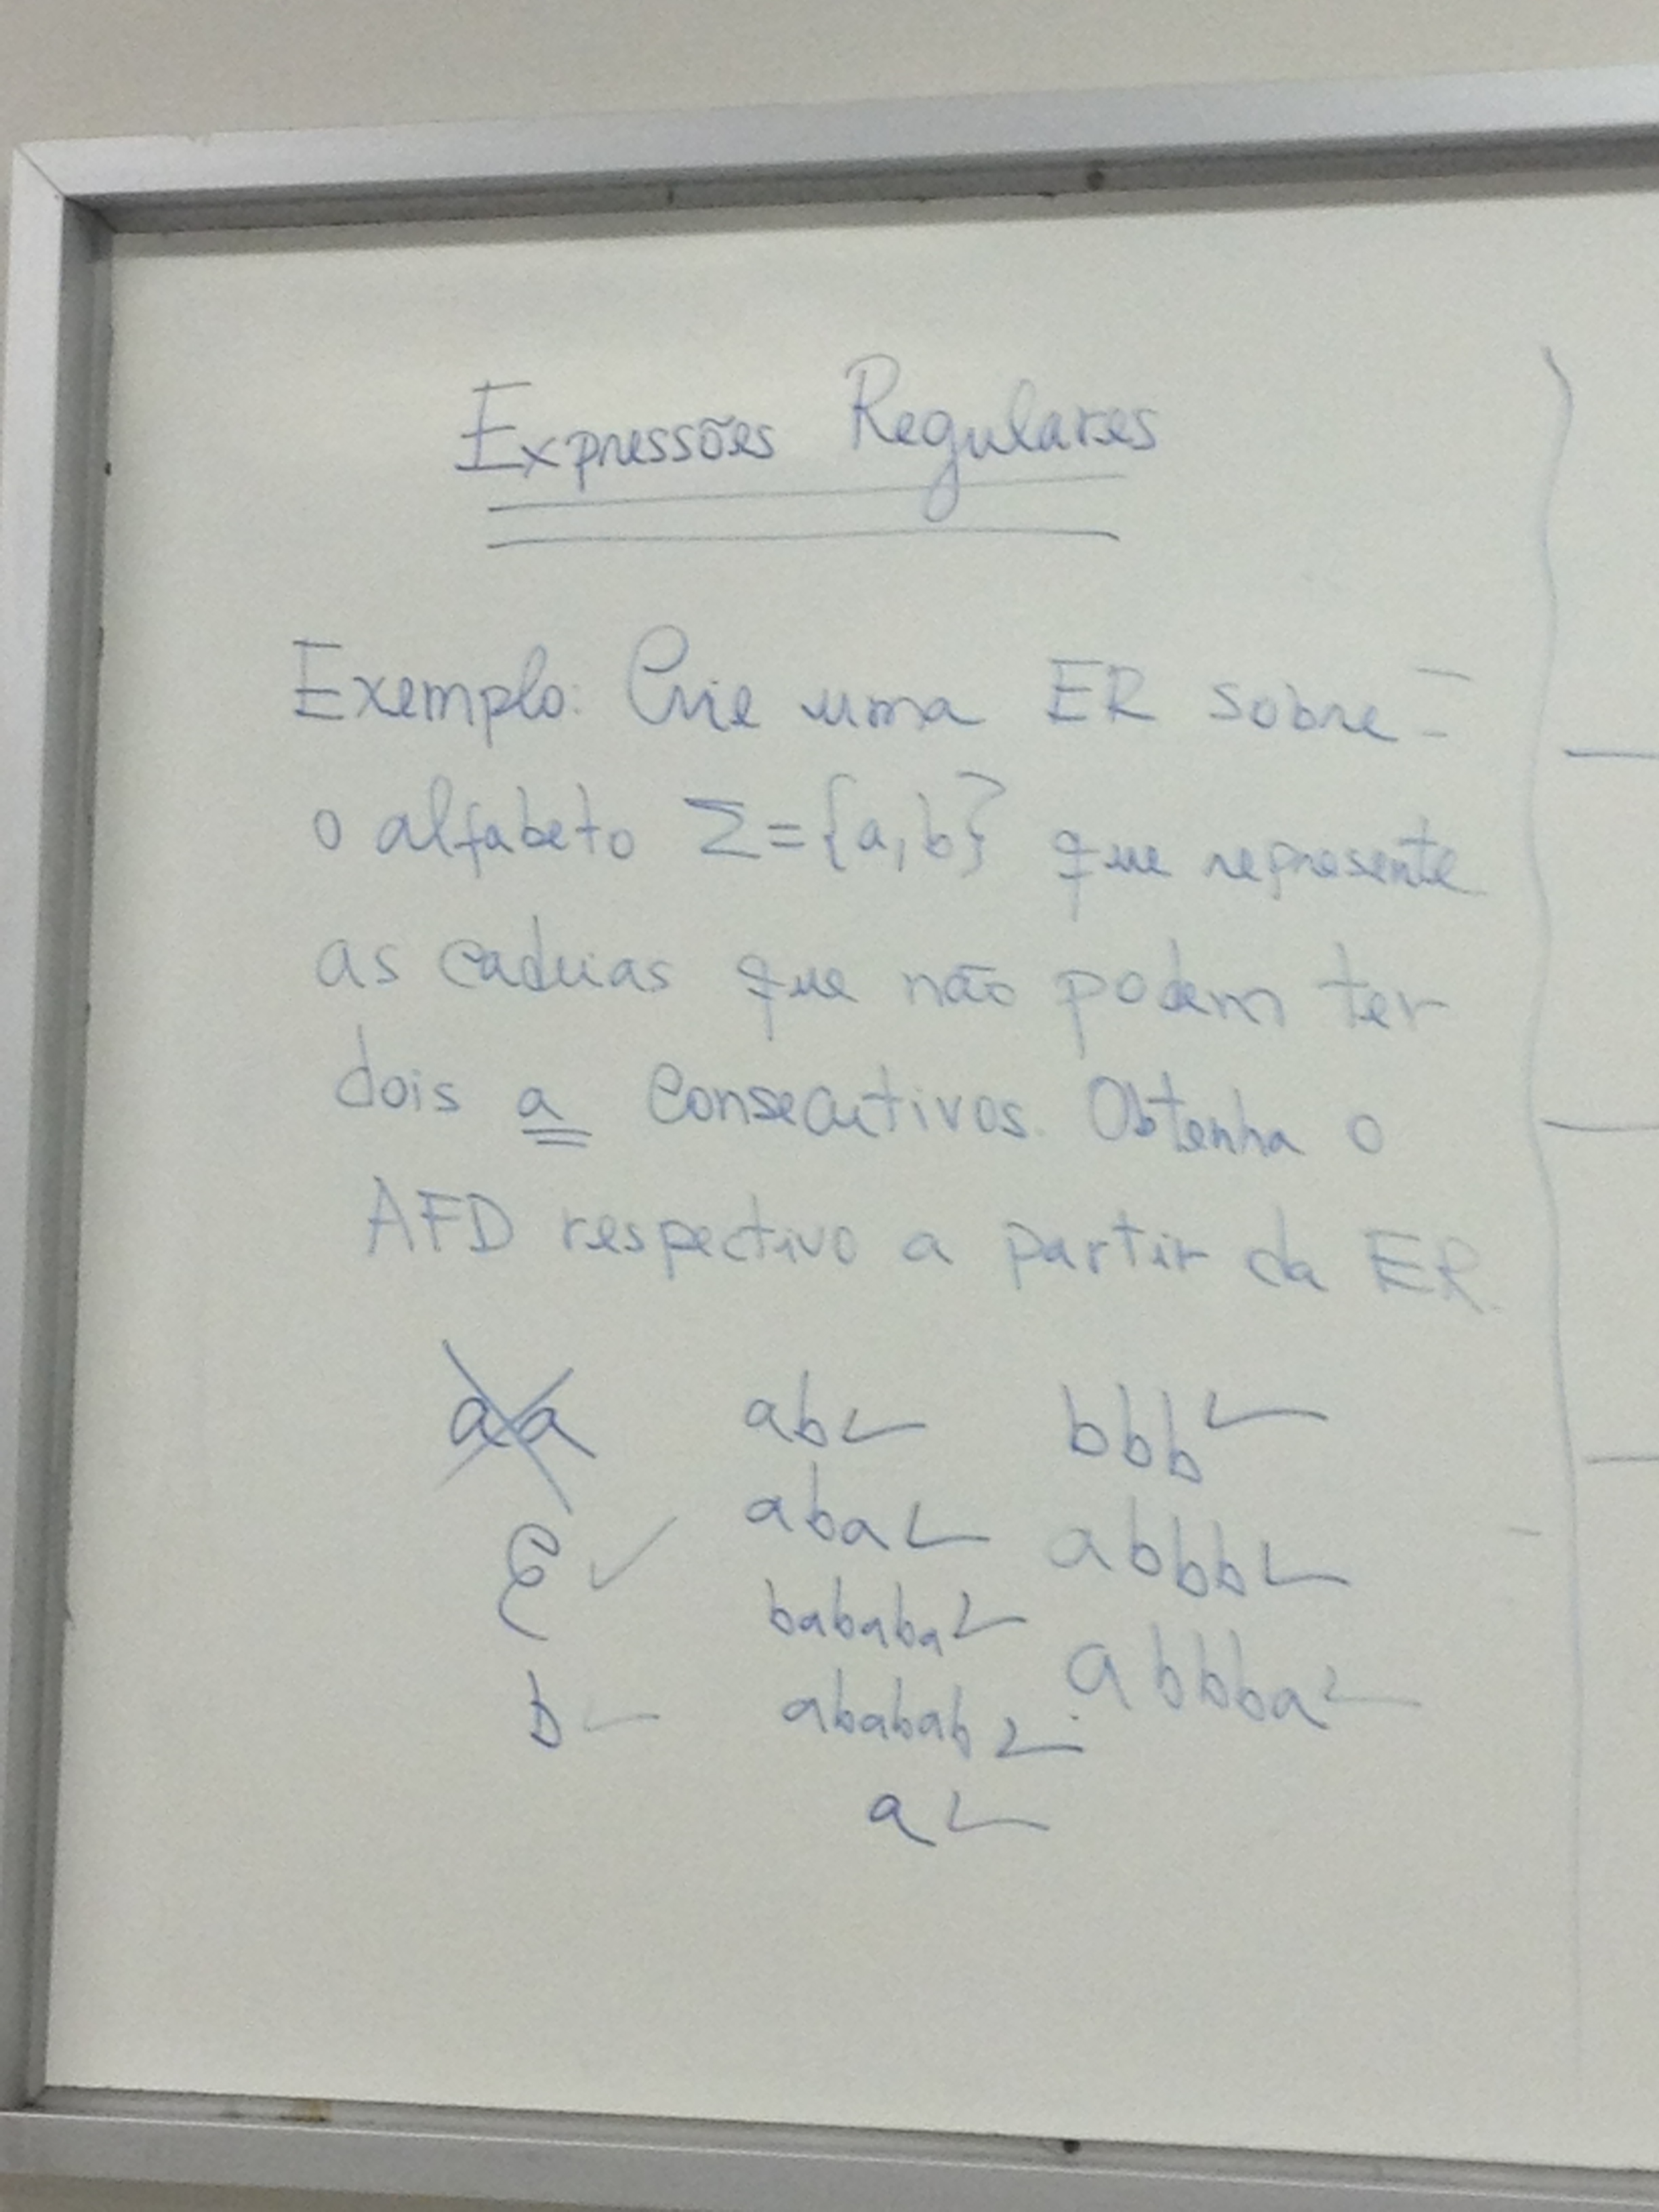 Expressões Regulares
Exemplo: Crie uma ER sobre
o alfabeto Σ={a,b} que represente
as cadeias que não podem ter
dois a consecutivos. Obtenha o
AFD respectivo a partir da ER.
aa ab✓ bbb✓
ε✓ aba✓ abbb✓
bababa✓ abbba✓
b✓ ababab✓
a✓